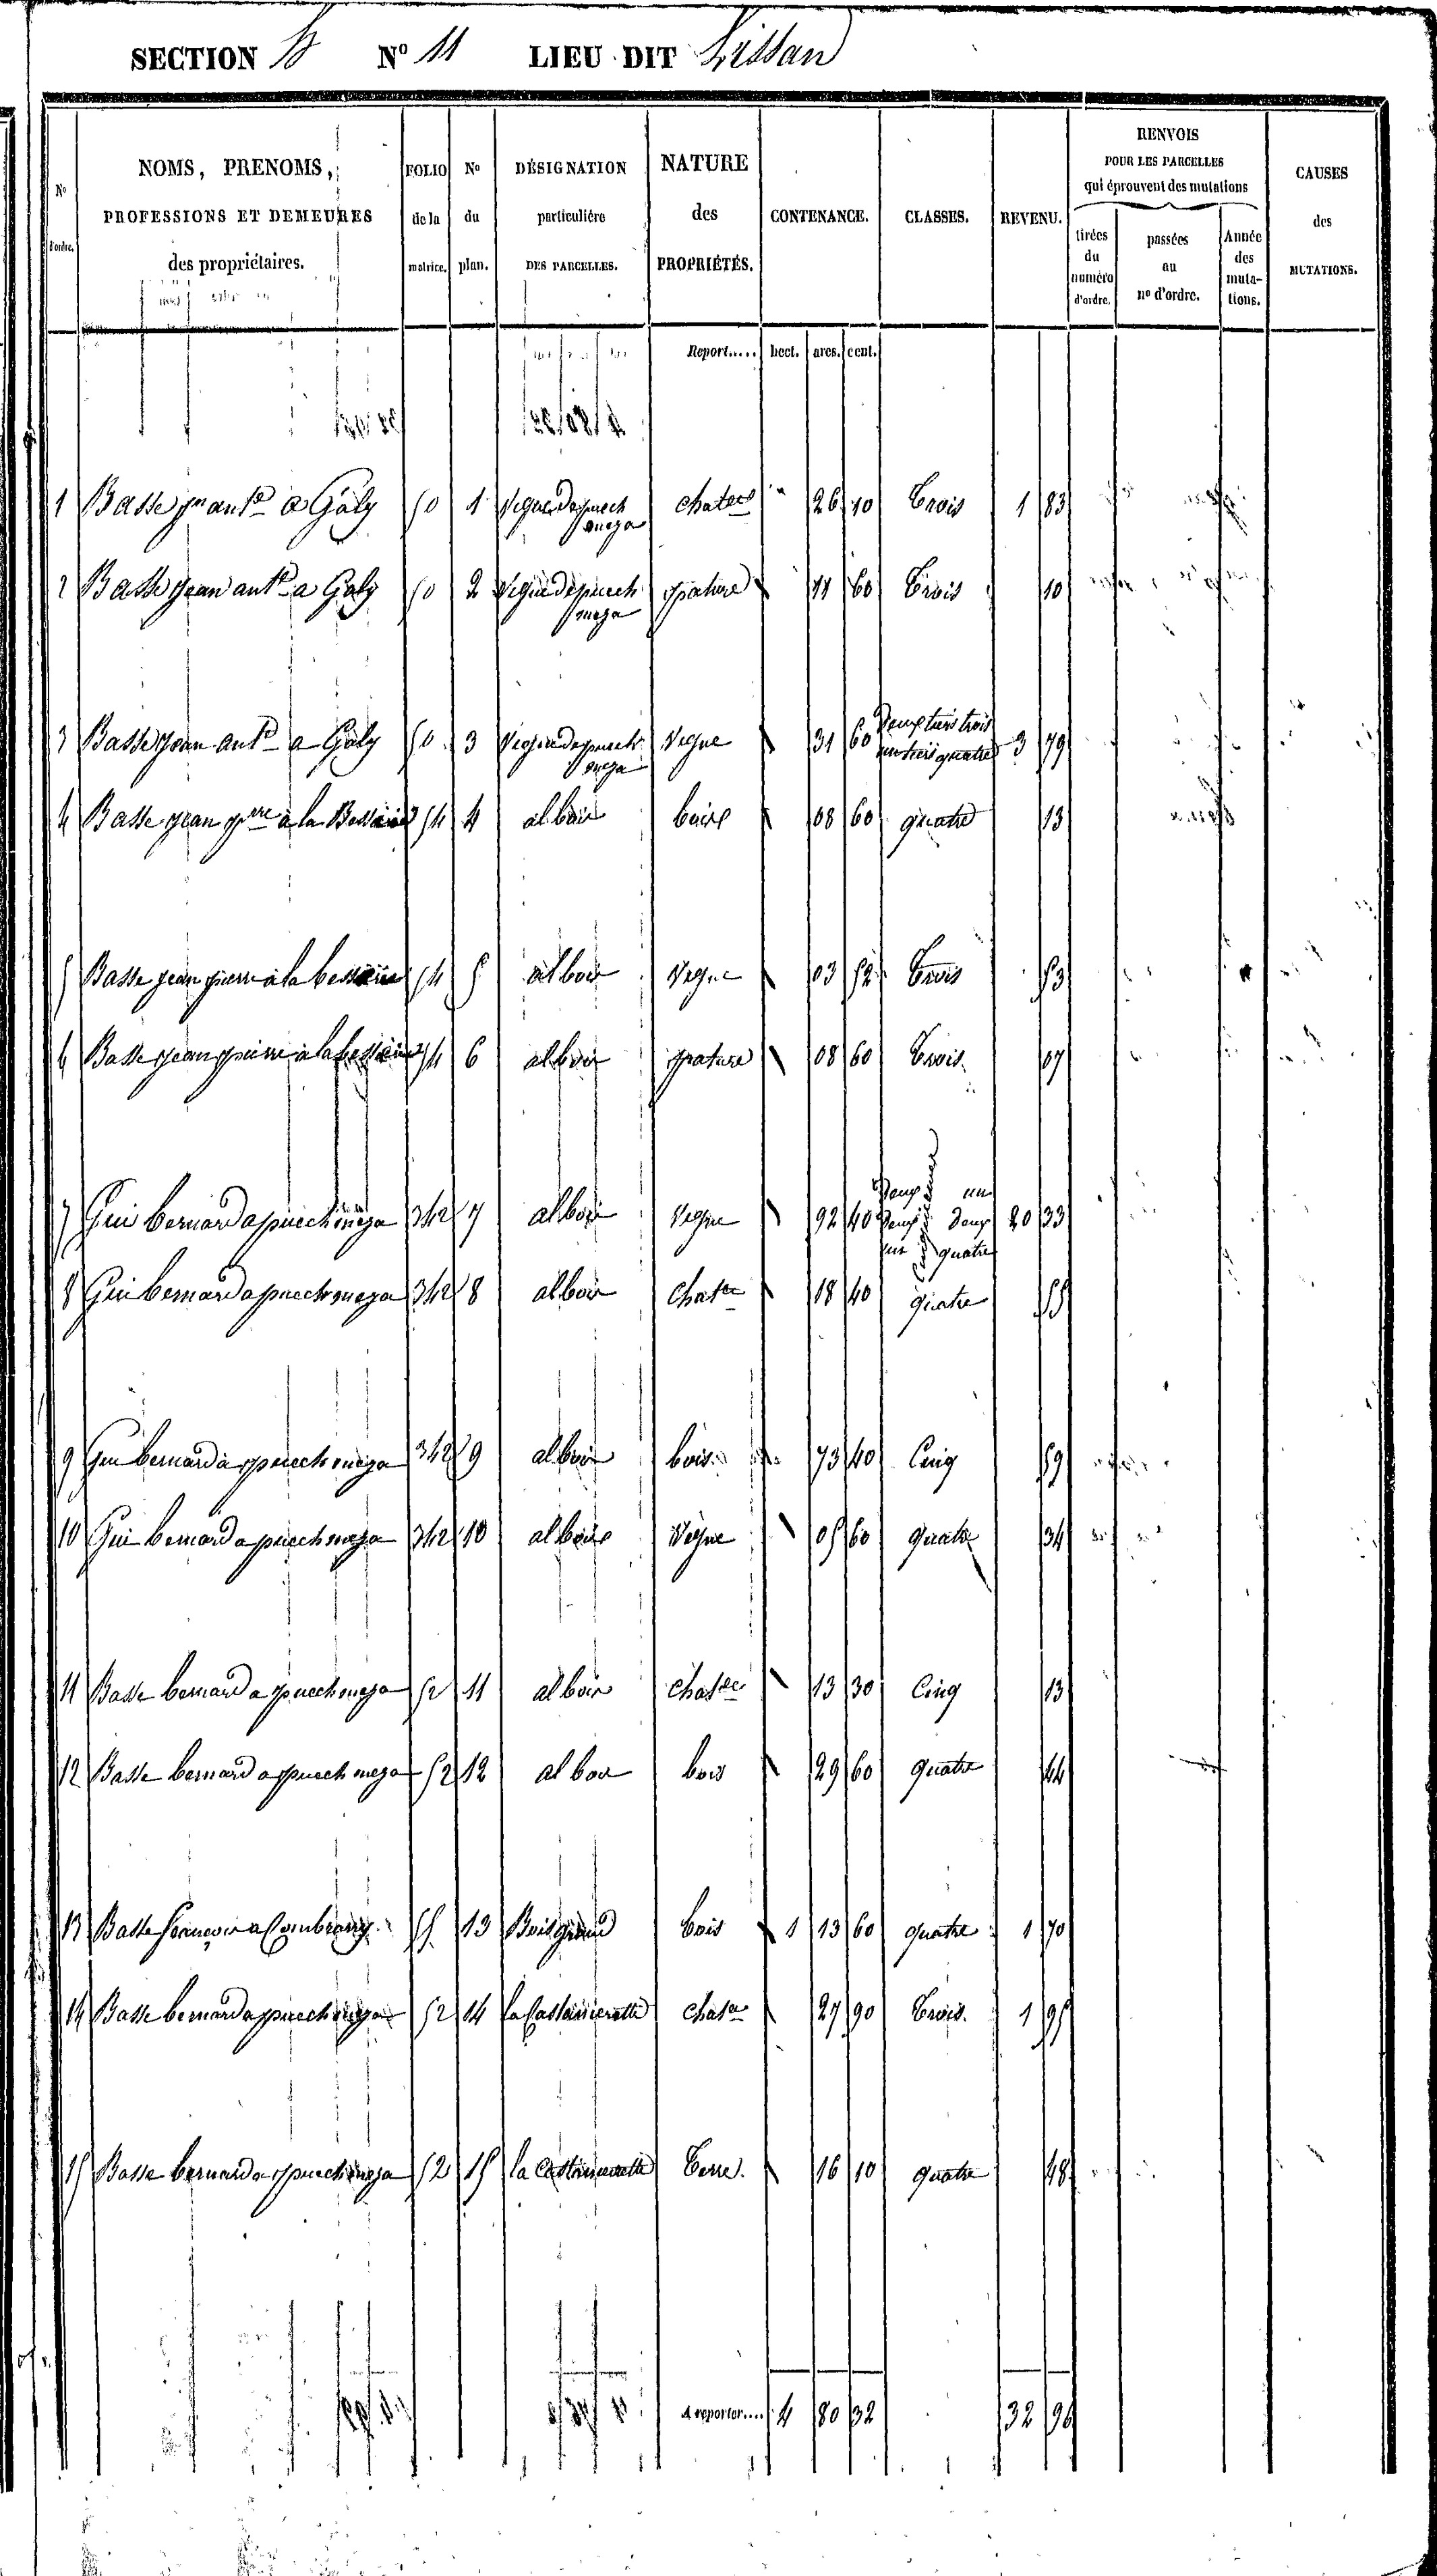 SECTION B N° 11 LIEU DIT Lissan
N° d'ordre.
NOMS, PRENOMS,
PROFESSIONS ET DEMEURES
des propriétaires.
FOLIO
de la
matrice.
No
du
plan.
DÉSIGNATION
particulière
DES PARCELLES.
NATURE
des
PROPRIÉTÉS.
CONTENANCE.
CLASSES.
REVENU.
RENVOIS
POUR LES PARCELLES
qui éprouvent des mutations
tirées
du
numéro
d'ordre.
passées
au
no d'ordre.
Année
des
muta-
tions.
CAUSES
des
MUTATIONS.
Report..... hect. ares. cent.
1 Basse jn ante a Galy 50 1 chater 26 10 Trois 1 83
2 Basse jean ante a Galy 50 2 pature 11 60 Trois 10
3 Basse jean ante a Galy 50 3 Vegne 31 60 Deux tiers trois
un tiers quatre 3 79
4 Basse jean prre a la 54 4 al boir boire 08 60 quatre 13
5 Basse jean pierre a la 54 5 al boir Vegne 03 52 Trois 53
6 Basse jean pierre a la 54 6 al boir pature 08 60 Trois. 07
7 Gui bernard a puech meja 342 7 al boir Vegne 92 40 Deux un
Deux Deux 20 33
un quatre
8 Gui bernard a puech meja 342 8 al boir Chater 18 40 quatre 55
9 Gui bernard a puech meja 342 9 al boir bois 73 40 Cinq 59
10 Gui bernard a puech meja 342 10 al boire Vegne 05 60 quatre 34
11 Basse bernard a puech meja 52 11 al boir chater 13 30 Cinq 13
12 Basse bernard a puech meja 52 12 al boir bois 29 60 quatre 44
13 Basse francois a 55 13 Bois grand bois 1 13 60 quatre 1 70
14 Basse bernard a puech meja 52 14 chater 27 90 Trois. 1 95
15 Basse bernard a puech meja 52 15 Terre. 16 10 quatre 48
A reporter.... 4 80 32 32 96